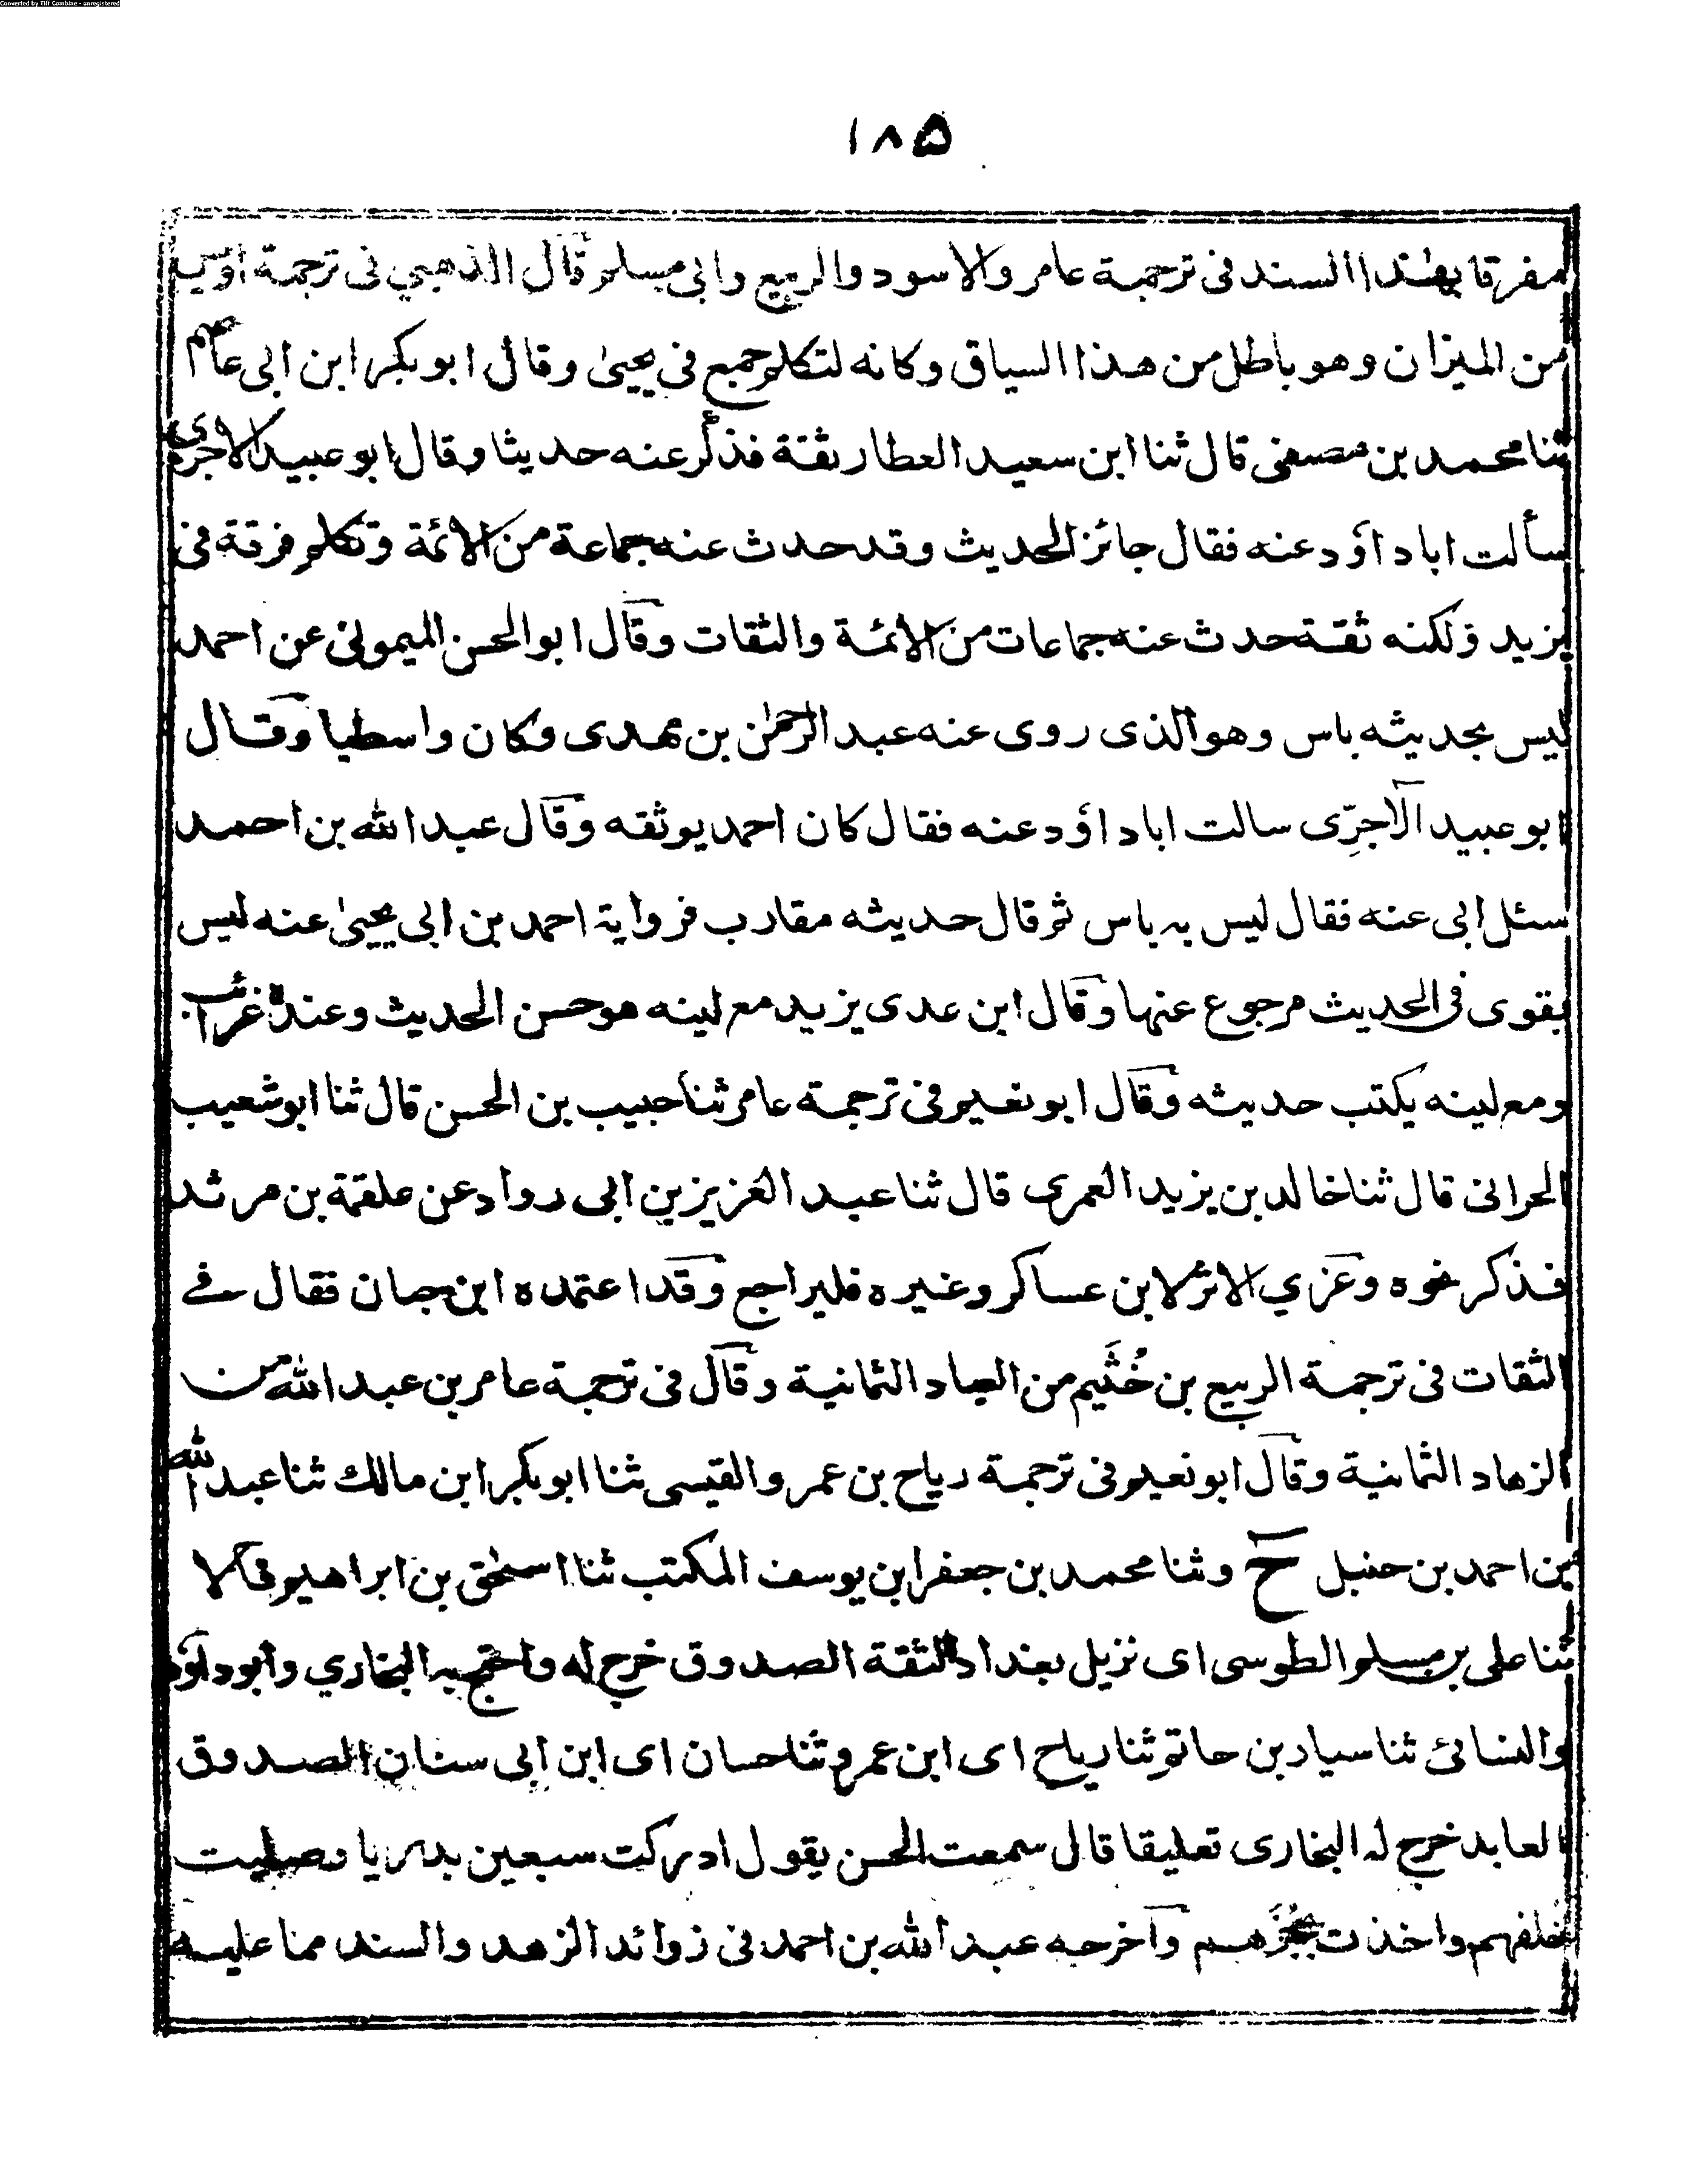 Converted by Tiff Combine - unregistered
۱۸۵
مفرقا بهذا السند فی ترجمة عامر والاسود والربیع وابی مسلم وقال الذهبي فی ترجمة اویس
من المیزان وهو باطل من هذا السیاق وکانه لتکلم جمیع فی یحییٰ وقال ابو بکر ابن ابی عاصم
ثنا محمد بن مصفی قال ثنا ابن سعید العطار ثقة فذکر عنه حدیثا وقال ابو عبید الاجری
سألت ابا داؤد عنه فقال جائز الحدیث وقد حدث عنه جماعة من الائمة وتکلم فرقة فی
یزید ولکنه ثقة حدث عنه جماعات من الائمة والثقات وقال ابو الحسن المیمونی عن احمد
لیس بحدیثه باس وهو الذی روی عنه عبد الرحمٰن بن مهدی وکان واسطیا وقال
ابو عبید الآجرّی سالت ابا داؤد عنه فقال کان احمد یوثقه وقال عبد الله بن احمد
سئل ابی عنه فقال لیس به باس ثم قال حدیثه مقارب فروایة احمد بن ابی یحییٰ عنه لیس
بقوی فی الحدیث مرجوع عنها وقال ابن عدی یزید مع لینه هو حسن الحدیث وعنده غرائب
ومع لینه یکتب حدیثه وقال ابو نعیم فی ترجمة عامر ثنا حبیب بن الحسن قال ثنا ابو شعیب
الحرانی قال ثنا خالد بن یزید العمری قال ثنا عبد العزیز بن ابی رواد عن علقمة بن مرثد
فذکر نحوه وعزي الاثر لابن عساکر وغیره فلیراجع وقد اعتمده ابن حبان فقال فے
الثقات فی ترجمة الربیع بن خُثَیم من العباد الثمانیة وقال فی ترجمة عامر بن عبد الله من
الزهاد الثمانیة وقال ابو نعیم فی ترجمة ریاح بن عمرو القیسی ثنا ابو بکر ابن مالك ثنا عبد الله
بن احمد بن حنبل ح وثنا محمد بن جعفر ابن یوسف المکتب ثنا اسحٰق بن ابراهیم قالا
ثنا علی بن مسلم الطوسی ای نزیل بغداد الثقة الصدوق خرج له واحتج به البخاري وابو داؤد
والنسائ ثنا سیار بن حاتم ثنا ریاح ای ابن عمرو ثنا حسان ای ابن ابی سنان الصدوق
العابد خرج له البخاری تعلیقا قال سمعت الحسن یقول ادرکت سبعین بدریا وصلیت
خلفهم واخذت بحُجَزهم وآخرجه عبد الله بن احمد فی زوائد الزهد والسند مما علیه